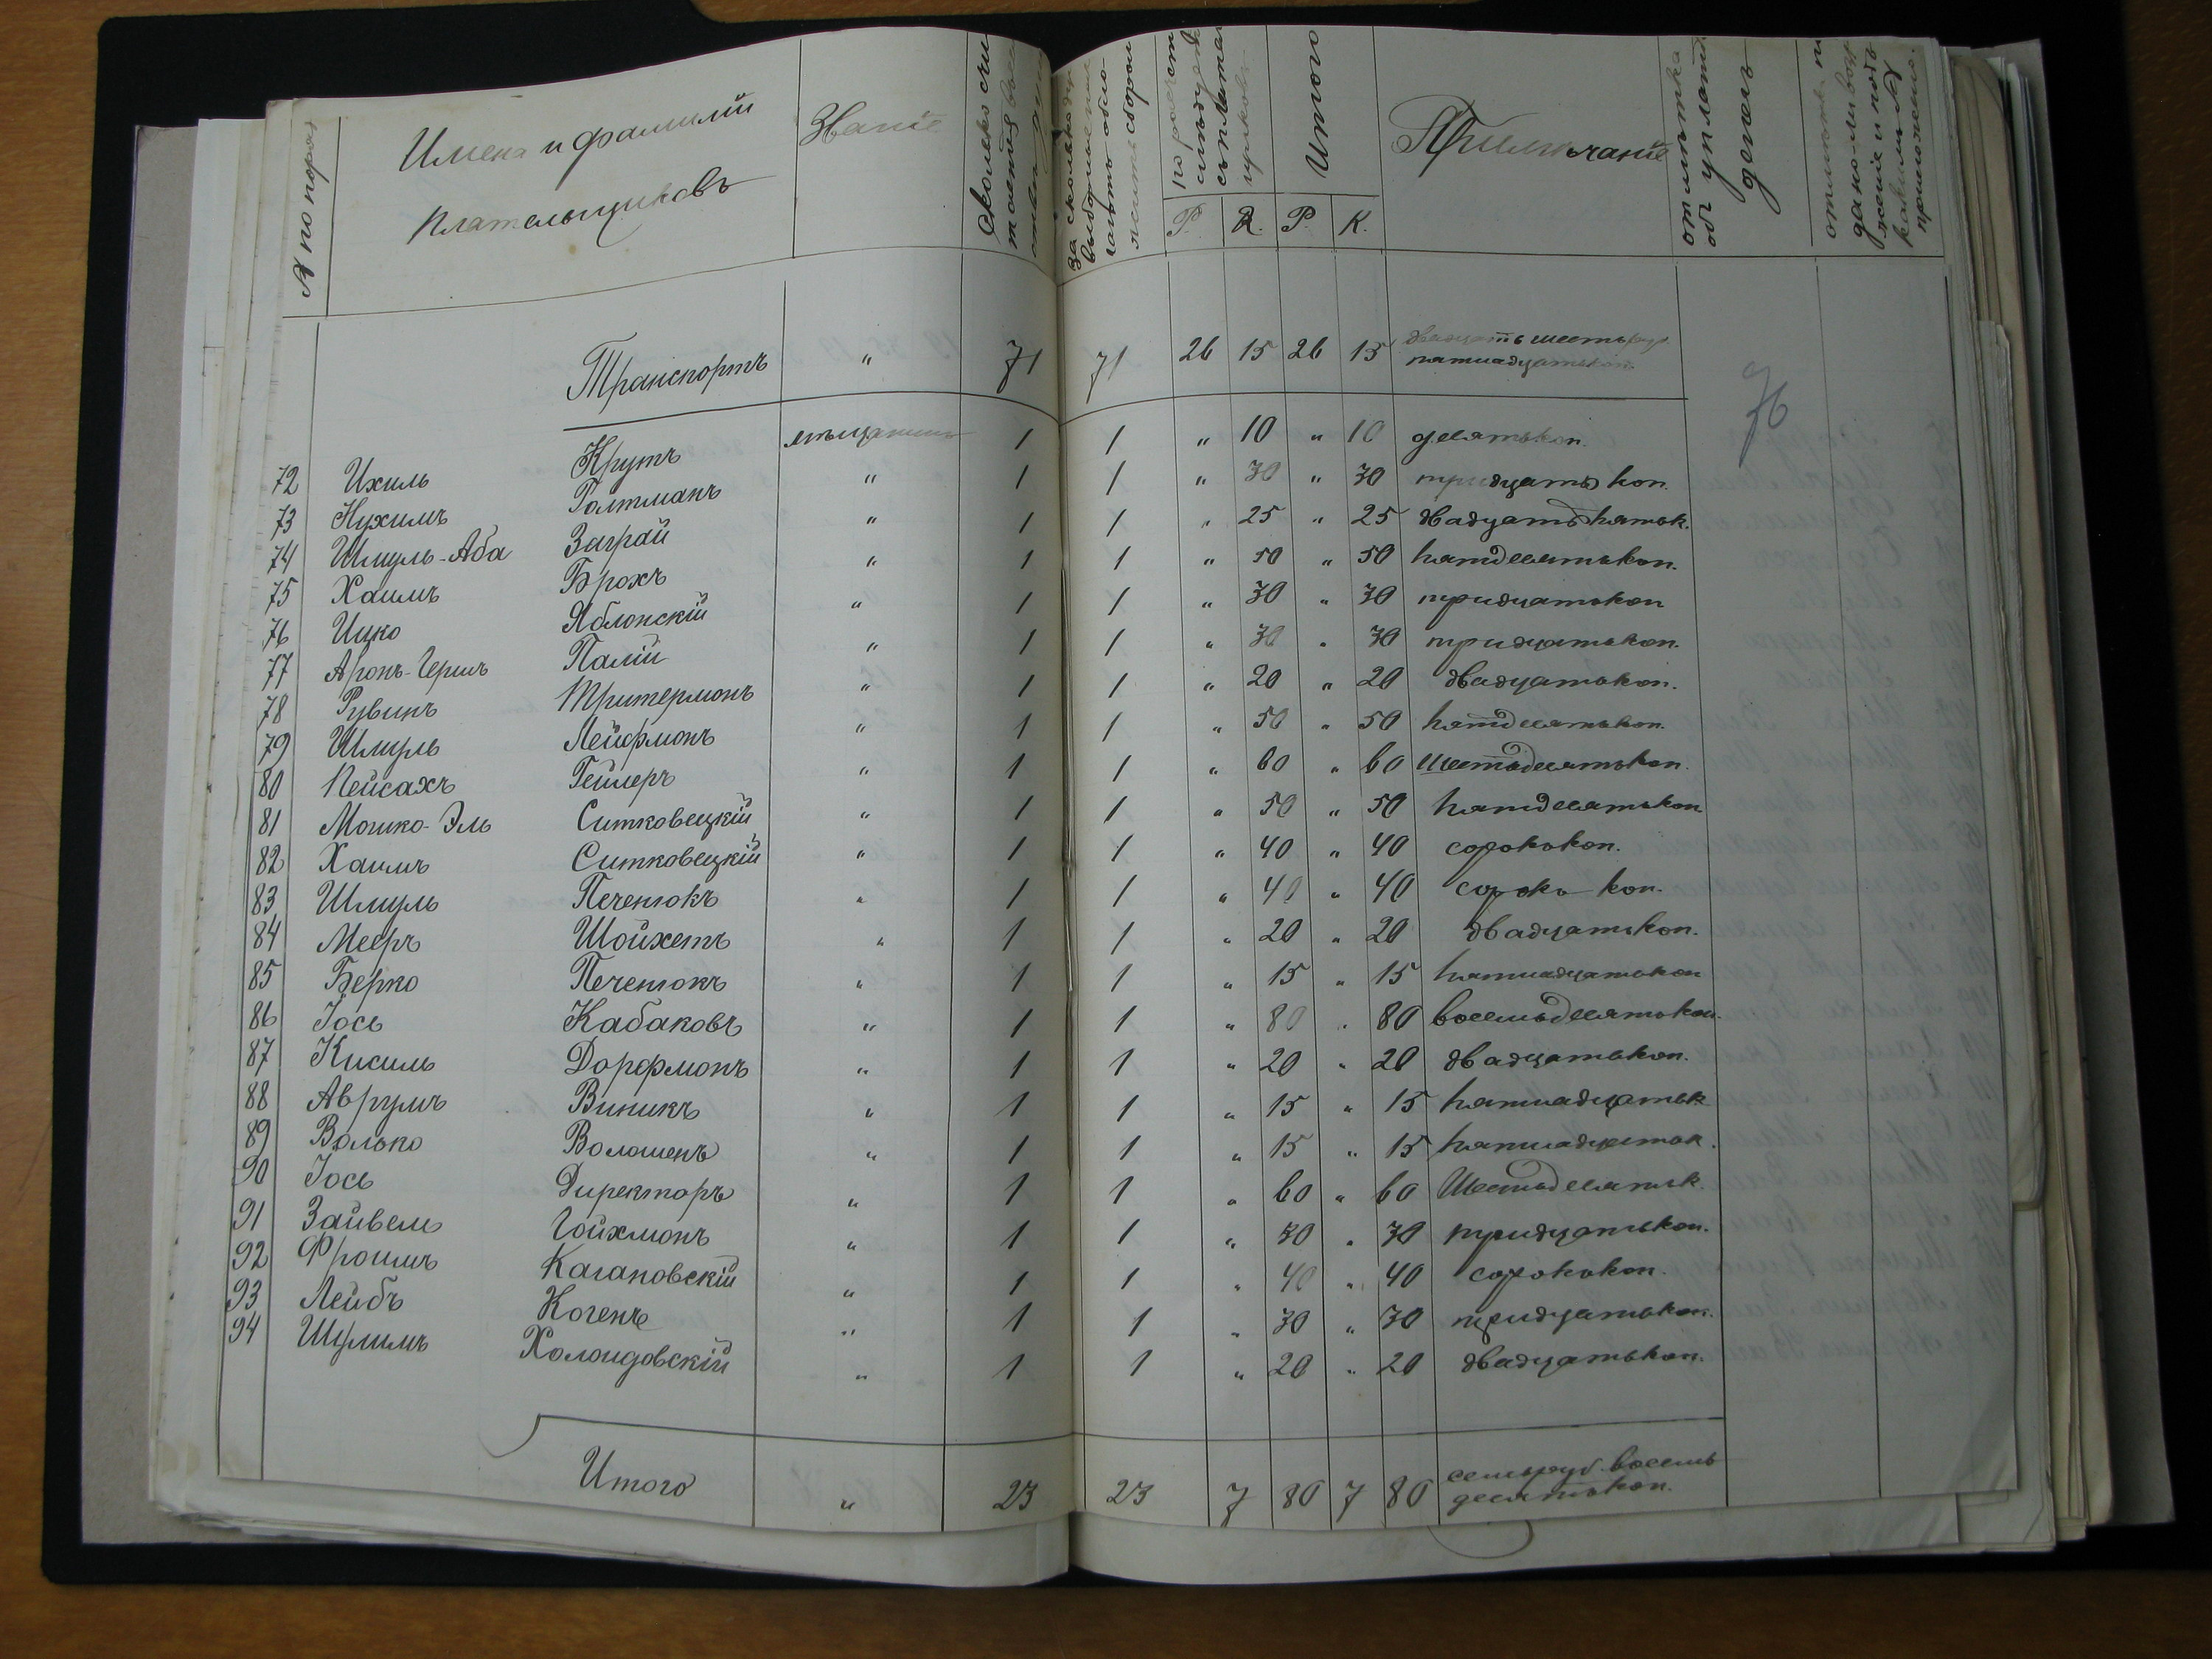 № по поряд
Имена и фамилiи
плательщиковъ
Званiе
Сколько
за сколько
сборомъ
по
Итого
Р. К. Р. К.
Примѣчанiе
отмѣтка
объ уплатѣ
денегъ
отмѣтка
76
Транспортъ " 71 71 26 15 26 15 двадцать шесть руб.
пятнадцать коп.
72 Ихиль Крутъ мѣщанинъ 1 1 " 10 " 10 десять коп.
73 Нухимъ Голтманъ " 1 1 " 30 " 30 тридцать коп.
74 Шмуль-Аба Заграй " 1 1 " 25 " 25 двадцать пять к.
75 Хаимъ Брохъ " 1 1 " 50 " 50 пятдесятъ коп.
76 Ицко Яблонскiй " 1 1 " 30 " 30 тридцать коп
77 Аронъ-Гершъ Палiй " 1 1 " 30 " 30 тридцать коп.
78 Рувинъ Тритермонъ " 1 1 " 20 " 20 двадцать коп.
79 Шмуль Лейфмонъ " 1 1 " 50 " 50 пятдесятъ коп.
80 Пейсахъ Геллеръ " 1 1 " 60 " 60 шестьдесятъ коп.
81 Мошко-Эль Ситковецкiй " 1 1 " 50 " 50 пятдесятъ коп
82 Хаимъ Ситковецкiй " 1 1 " 40 " 40 сорокъ коп.
83 Шмуль Печенюкъ " 1 1 " 40 " 40 сорокъ коп.
84 Мееръ Шойхетъ " 1 1 " 20 " 20 двадцать коп.
85 Берко Печенюкъ " 1 1 " 15 " 15 пятнадцать коп
86 Iось Кабаковъ " 1 1 " 80 " 80 восемьдесятъ коп.
87 Кисиль Дорфмонъ " 1 1 " 20 " 20 двадцать коп.
88 Аврумъ Виникъ " 1 1 " 15 " 15 пятнадцать к
89 Волько Волошенъ " 1 1 " 15 " 15 пятнадцать к.
90 Iось Директоръ " 1 1 " 60 " 60 Шестьдесятъ к.
91 Зайвель Гойхмонъ " 1 1 " 30 " 30 тридцать коп.
92 Фроимъ Кагановскiй " 1 1 " 40 " 40 сорокъ коп.
93 Лейбъ Когенъ " 1 1 " 30 " 30 тридцать коп.
94 Шулимъ Холоидовскiй " 1 1 " 20 " 20 двадцать коп.
Итого " 23 23 7 80 7 80 семь руб. восемь
десятъ коп.